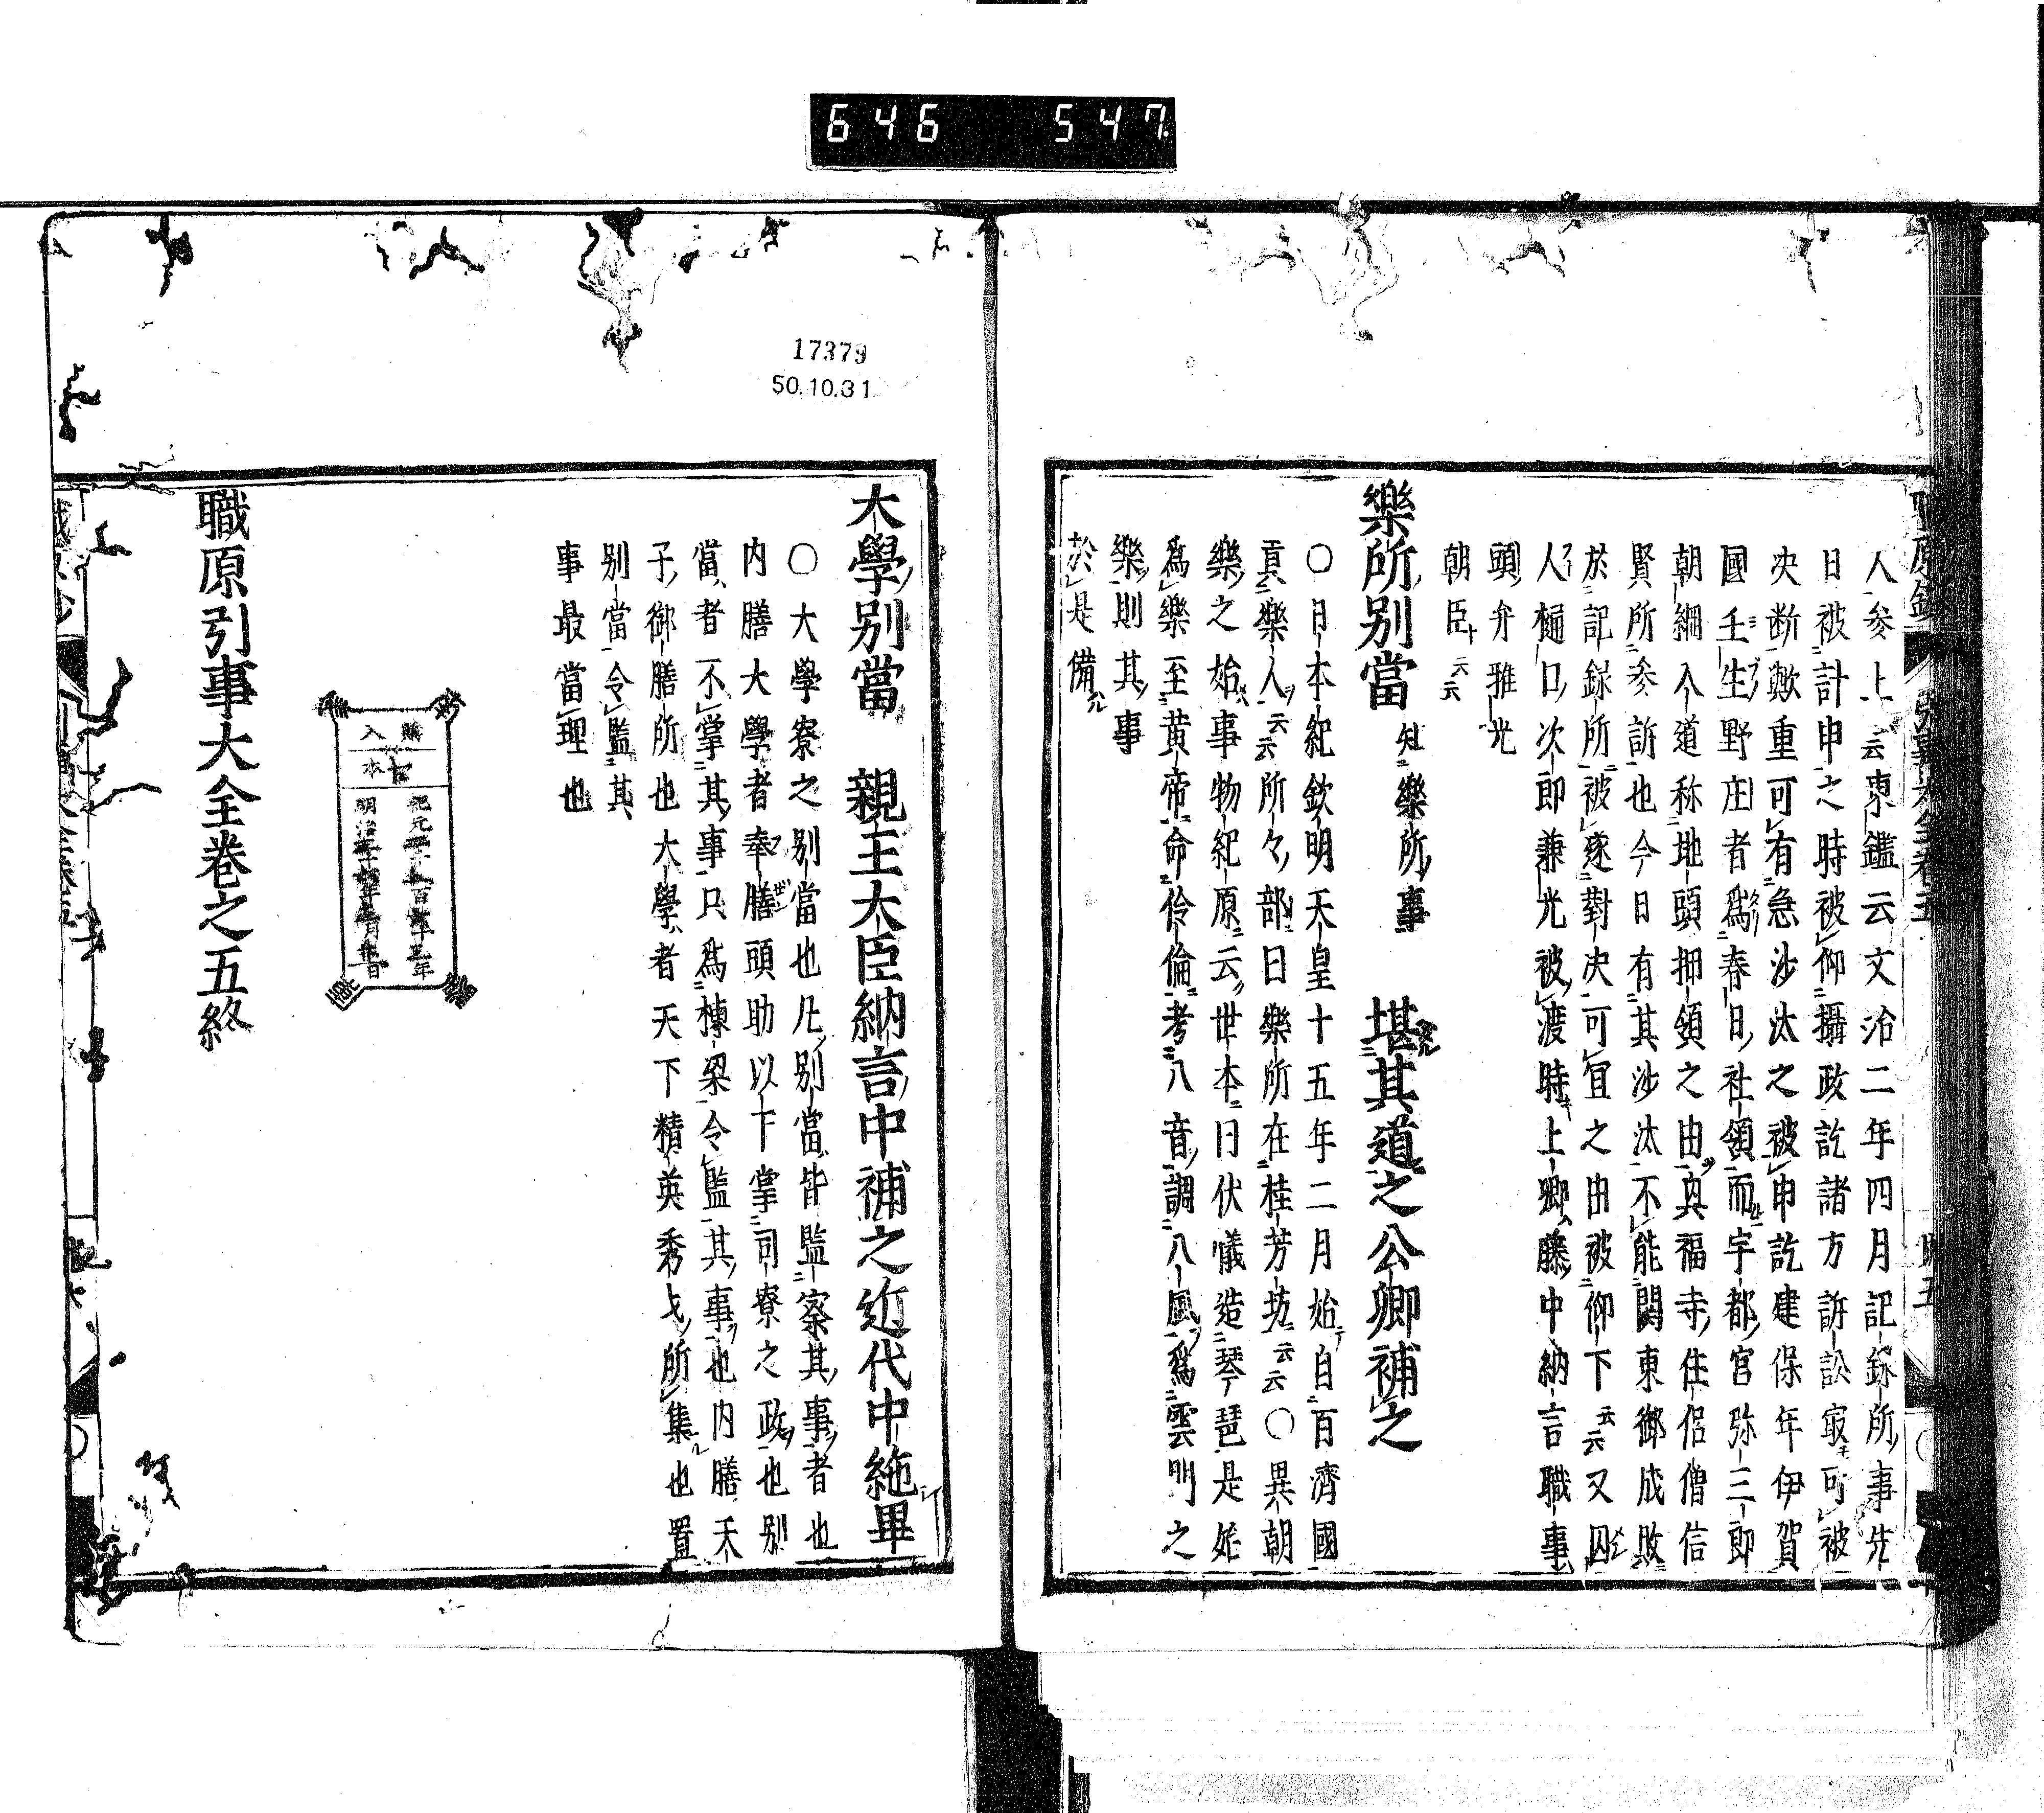 646 547
人参上云云東鑑云文治二年四月記録所事先
日被計申之時被仰攝政訖諸方訴訟最可被
決断歟重可有急沙汰之被申訖建保年伊賀
國壬生野庄者為春日社領而宇都宮弥三郎
朝綱入道称地頭押領之由真福寺住侶僧信
賢所参訴也今日有其沙汰不能関東御成敗
於記録所被遂對决可宜之由被仰下云云又囚
人樋口次郎兼光被渡時上卿藤中納言職事
頭弁雅光
朝臣云云
樂所别當 知樂所事 堪其道之公卿補之
〇日本紀欽明天皇十五年二月始自百濟國
貢樂人云云所々部曰樂所在桂芳坊云云〇異朝
樂之始事物紀原云世本曰伏犧造琴琶是始
為樂至黄帝命伶倫考八音調八風為雲門之
樂則其事
於是備
大學别當 親王大臣納言中補之近代中絁畢
〇大學寮之别當也凡别當皆監察其事者也
内膳大學者奉膳頭助以下掌司寮之政也别
當者不掌其事只為棟梁令監其事也内膳天
子御膳所也大學者天下精英秀才所集也置
别當令監其
事最當理也
購入
古本
職原引事大全巻之五終
17379
50.10.31